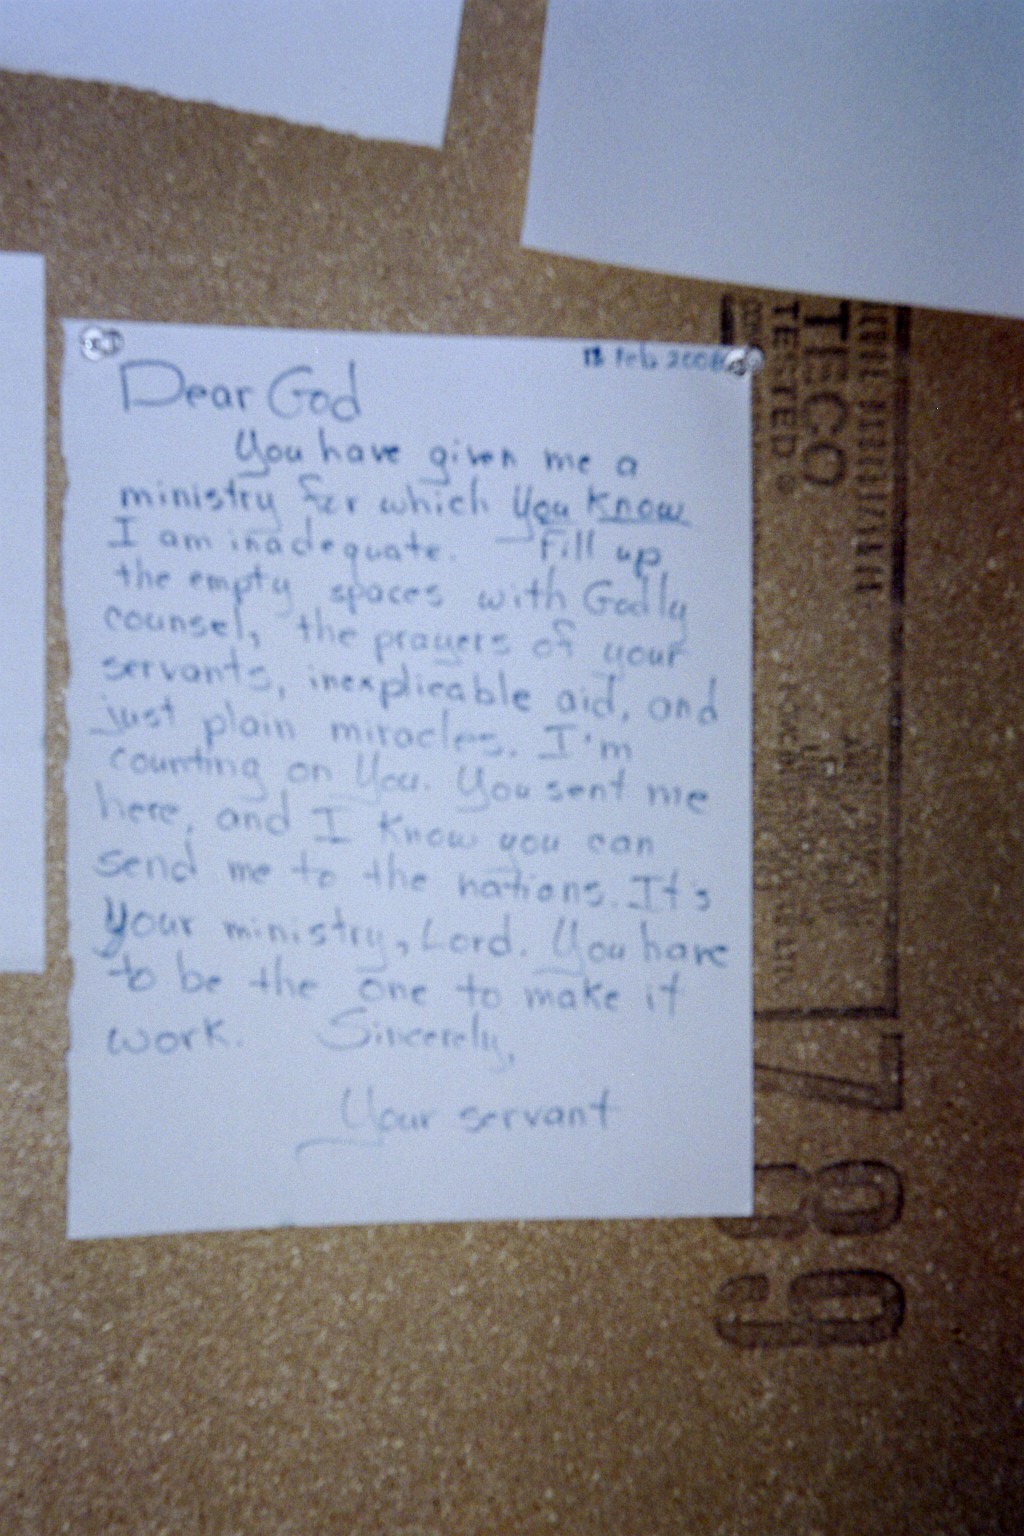 13 Feb 2008
Dear God
You have given me a
ministry for which You know
I am inadequate. Fill up
the empty spaces with Godly
counsel, the prayers of your
servants, inexplicable aid, and
just plain miracles. I'm
counting on You. You sent me
here, and I know you can
send me to the nations. It's
your ministry, Lord. You have
to be the one to make it
work. Sincerely,
Your servant
TECO
TESTED